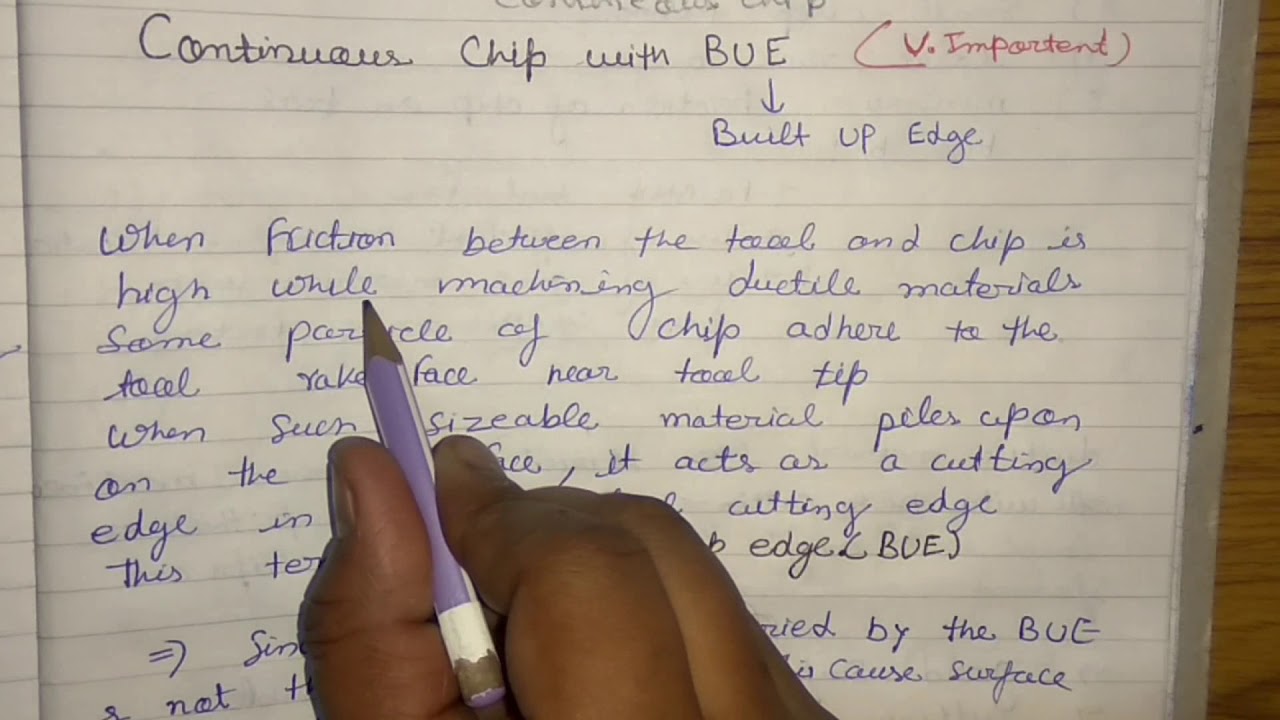 Continuous Chip with BUE (V. Importent)
↓
Built UP Edge
When friction between the tool and chip is
high while machining ductile materials
Some particle of chip adhere to the
tool rake face near tool tip
When such sizeable material piles upon
on the face, it acts as a cutting
edge in cutting edge
This edge (BUE)
⇒ by the BUE
is not cause surface